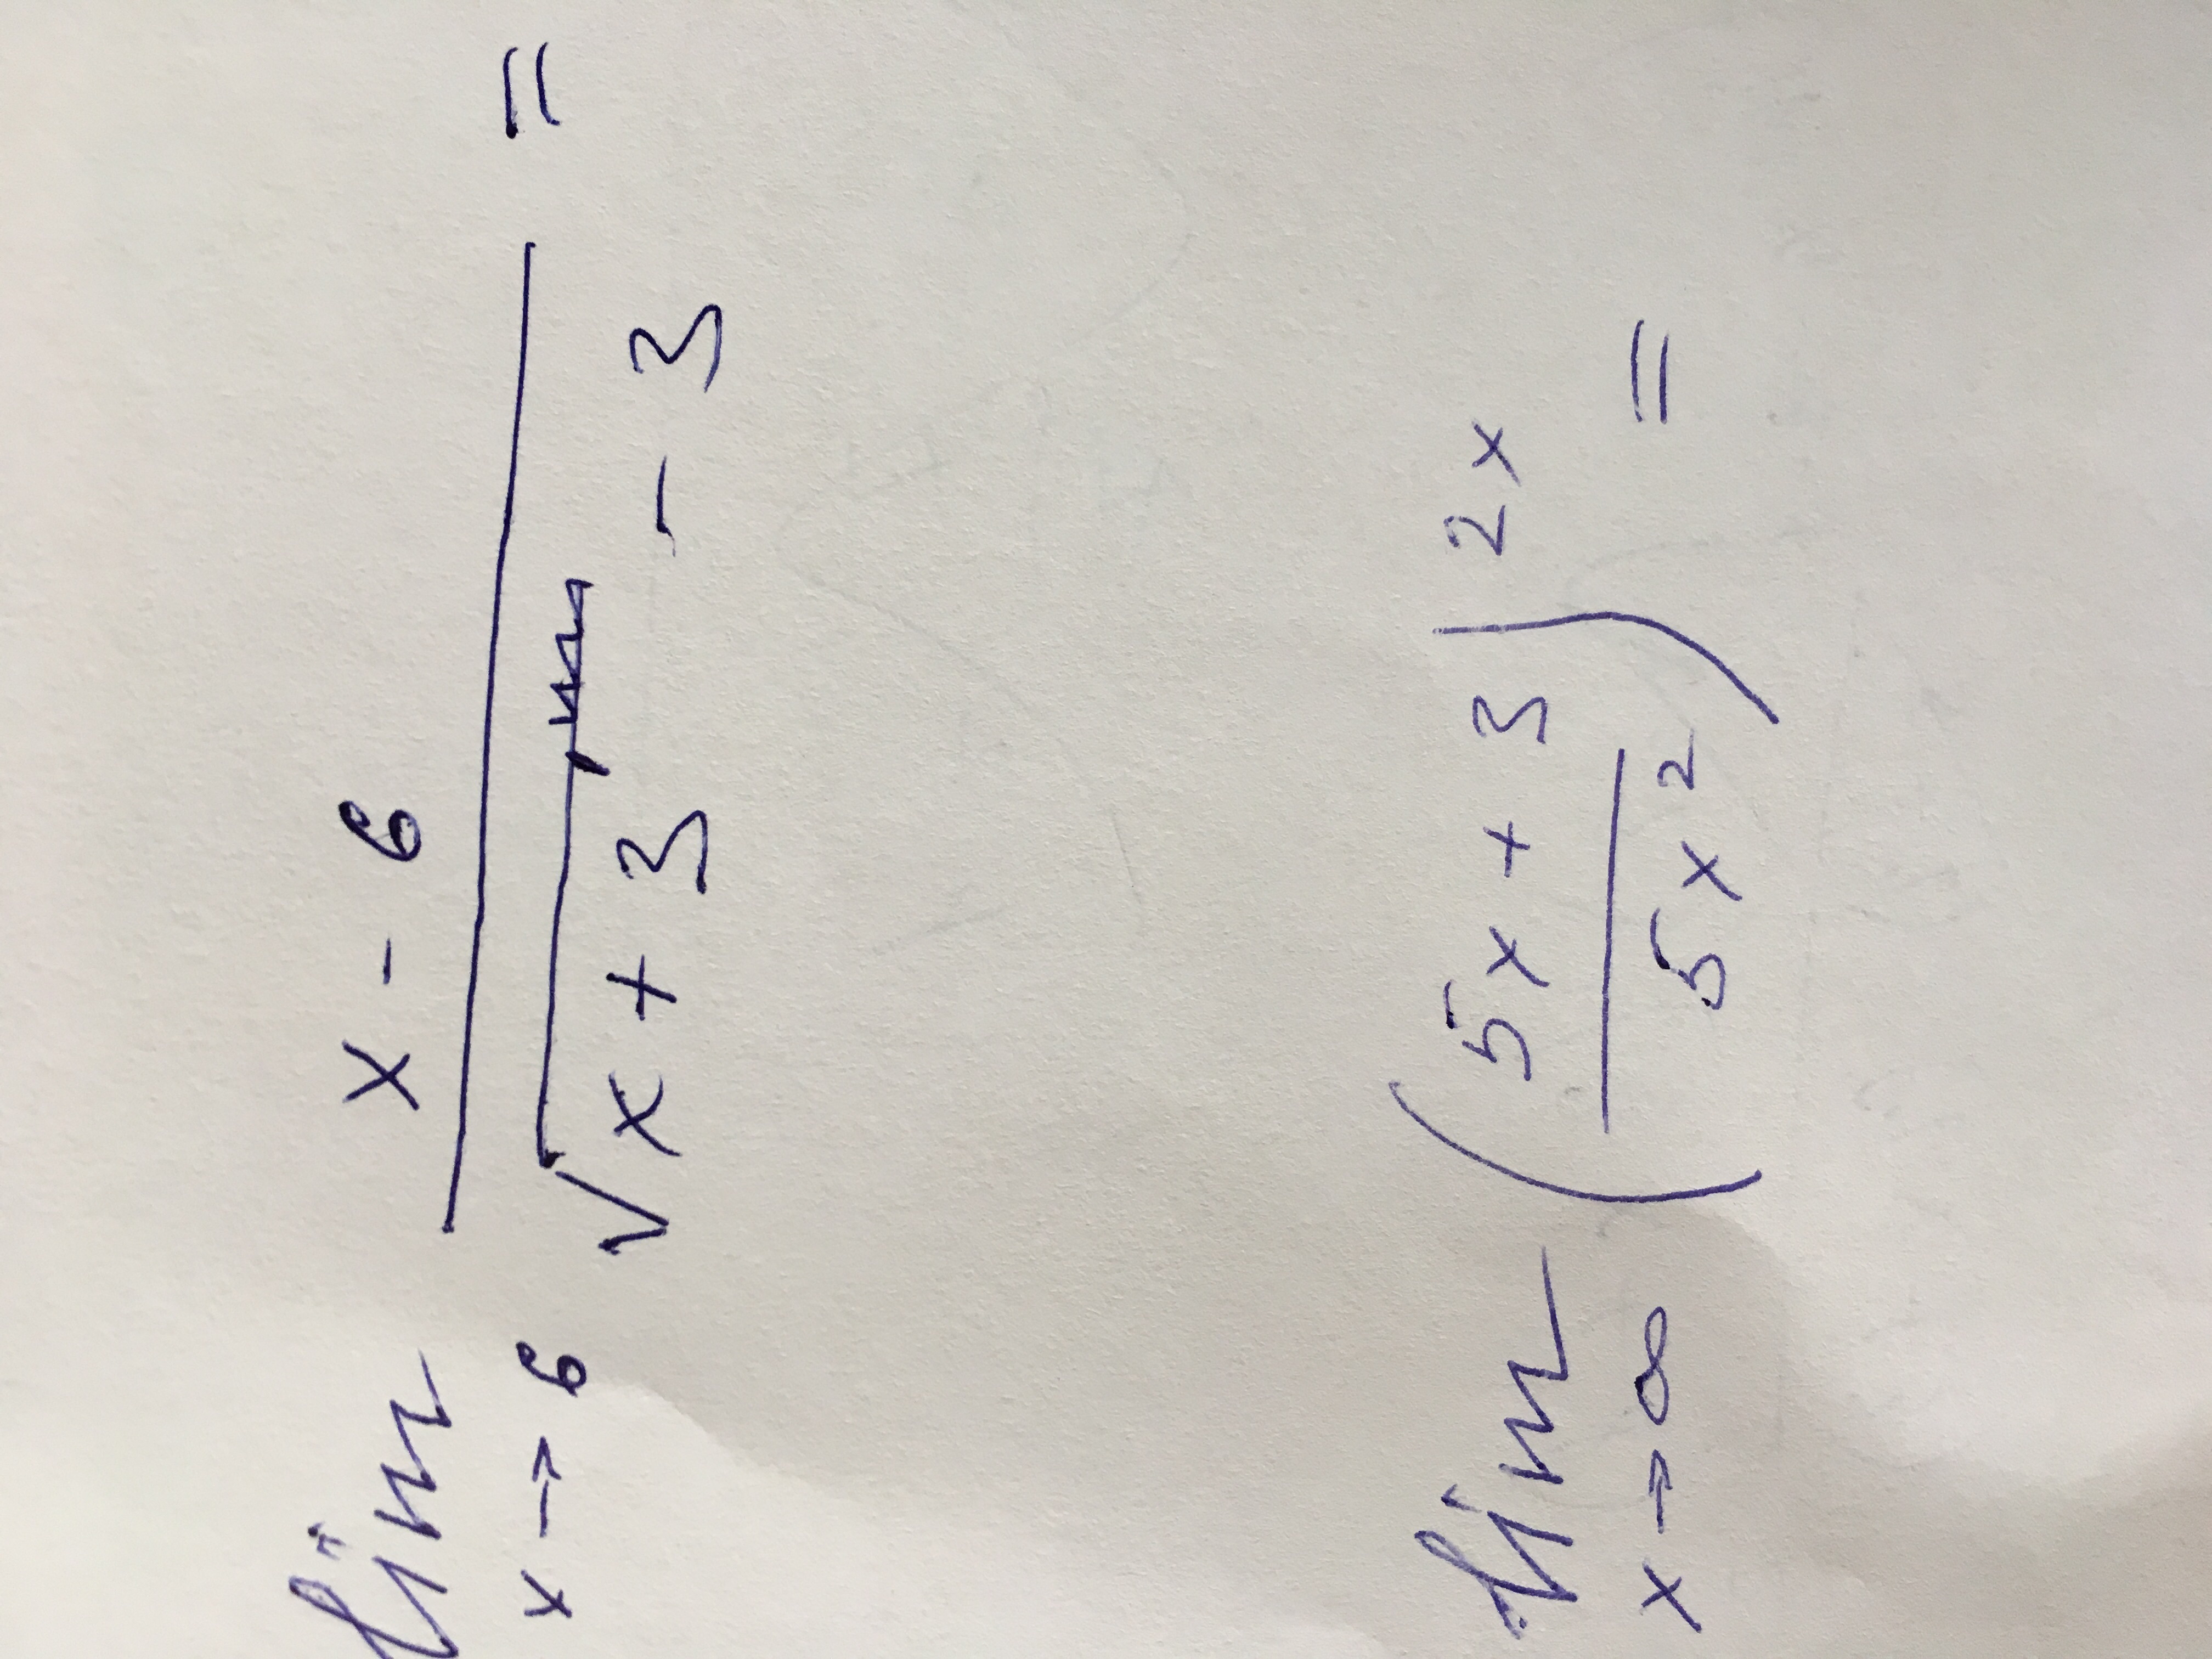 lim x→6 (x - 6)/(√(x + 3) - 3) =
lim x→∞ ((5x + 3)/(5x²))^(2x) =